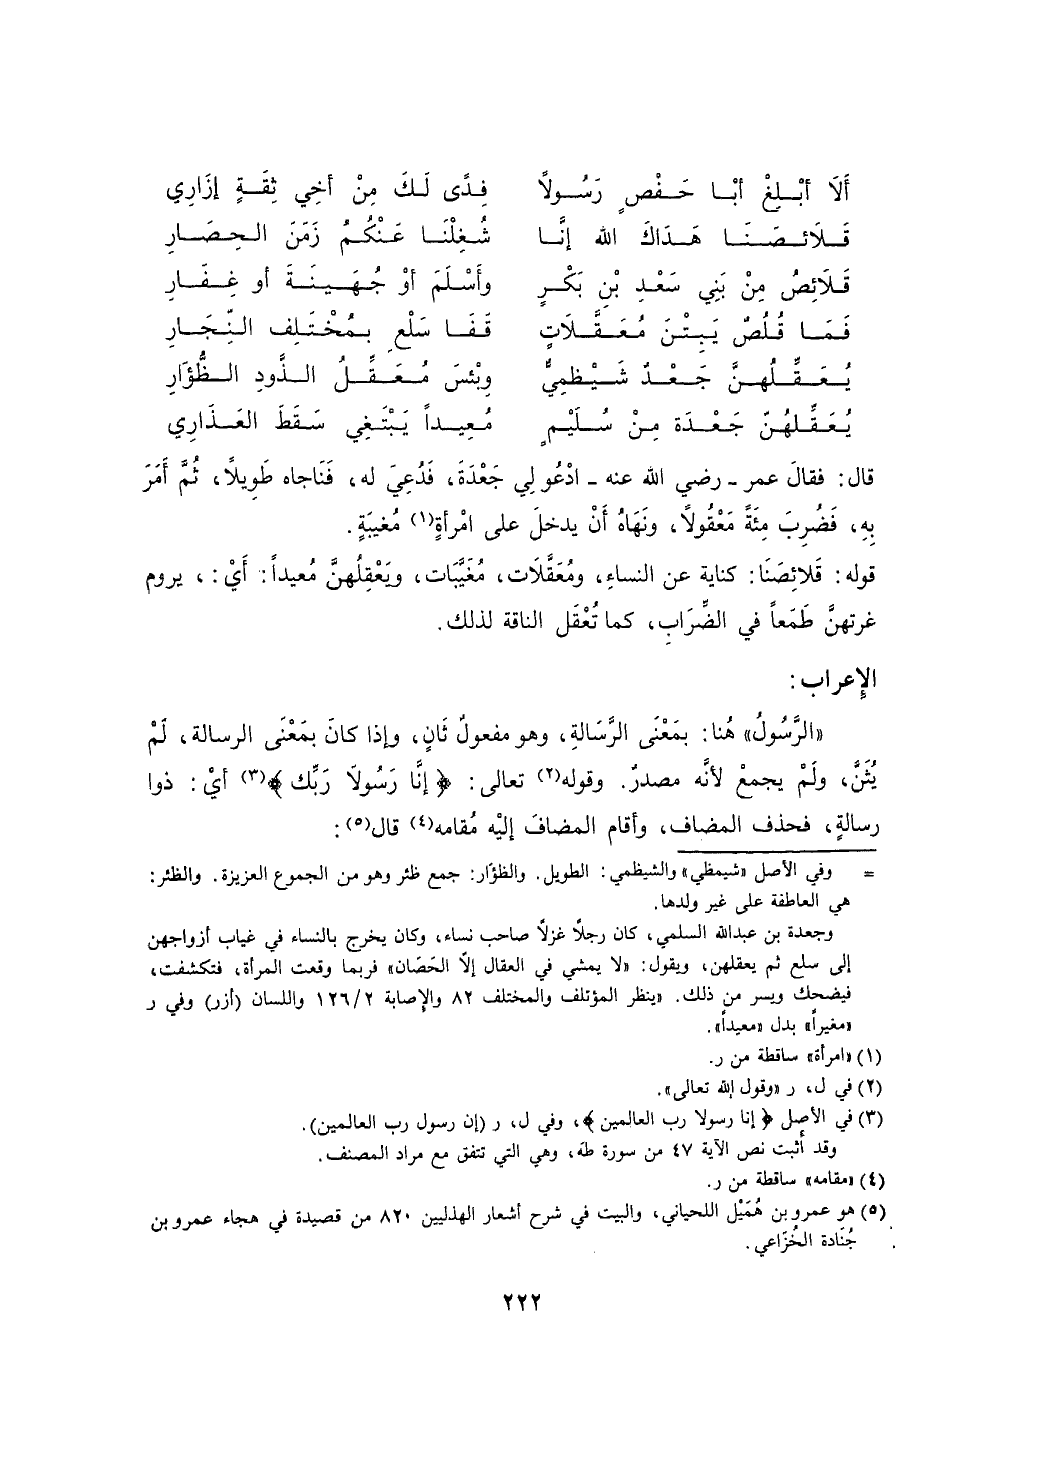 أَلَا أَبْلِغْ أَبَا حَفْصٍ رَسُولاً فِدًى لَكَ مِنْ أَخِي ثِقَةٍ إزَارِي
قَلَائِصَنَا هَدَاكَ الله إنَّا شُغِلْنَا عَنْكُمُ زَمَنَ الحِصَارِ
قَلَائِصُ مِنْ بَنِي سَعْدِ بْنِ بَكْرٍ وأَسْلَمَ أوْ جُهَيْنَةَ أو غِفَارِ
فَمَا قُلُصٌ يَبِتْنَ مُعَقَّلَاتٍ قَفَا سَلْعٍ بِمُخْتَلِفِ النِّجَارِ
يُعَقِّلُهنَّ جَعْدٌ شَيْظَمِيٌّ وبِئْسَ مُعَقِّلُ الذَّودِ الظُّؤَارِ
يُعَقِّلُهُنّ جَعْدَة مِنْ سُلَيْمٍ مُعِيداً يَبْتَغِي سَقَطَ العَذَارِي
قال: فقالَ عمر ـ رضي الله عنه ـ ادْعُو لِي جَعْدَةَ، فَدُعِيَ له، فَنَاجاه طَوِيلاً، ثُمَّ أَمَرَ
بِهِ، فَضُرِبَ مِئَةً مَعْقُولاً، ونَهَاهُ أَنْ يدخلَ على امْرأةٍ(١) مُغيبَةٍ.
قوله: قَلائِصَنَا: كناية عن النساءِ، ومُعَقَّلات، مُغَيَّبَات، ويَعْقِلُهنَّ مُعيداً: أَيْ: ، يروم
غرتهنَّ طَمَعاً في الضِّرَابِ، كما تُعْقَل الناقة لذلك.
الإعراب:
«الرَّسُولُ» هُنا: بمَعْنَى الرَّسَالةِ، وهو مفعولٌ ثَانٍ، وإذا كانَ بمَعْنَى الرسالة، لَمْ
يُثَنَّ، ولَمْ يجمعْ لأنَّه مصدرٌ. وقوله(٢) تعالى: ﴿ إنَّا رَسُولاَ رَبِّك ﴾(٣) أيْ: ذوا
رسالةٍ، فحذف المضاف، وأقام المضافَ إليْه مُقامه(٤) قال(٥):
= وفي الأصل «شيمظي» والشيظمي: الطويل. والظؤار: جمع ظئر وهو من الجموع العزيزة. والظئر:
هي العاطفة على غير ولدها.
وجعدة بن عبدالله السلمي، كان رجلاً غزلاً صاحب نساء، وكان يخرج بالنساء في غياب أزواجهن
إلى سلع ثم يعقلهن، ويقول: «لا يمشي في العقال إلاّ الحَصَان» فربما وقعت المرأة، فتكشفت،
فيضحك ويسر من ذلك. «ينظر المؤتلف والمختلف ٨٢ والإصابة ١٢٦/٢ واللسان (أزر) وفي ر
«مغيراً» بدل «معيداً».
(١) «امرأة» ساقطة من ر.
(٢) في ل، ر «وقول الله تعالى».
(٣) في الأصل ﴿ إنا رسولا رب العالمين ﴾، وفي ل، ر (إن رسول رب العالمين).
وقد أثبت نص الآية ٤٧ من سورة طه، وهي التي تتفق مع مراد المصنف.
(٤) «مقامه» ساقطة من ر.
(٥) هو عمرو بن هُمَيْل اللحياني، والبيت في شرح أشعار الهذليين ٨٢٠ من قصيدة في هجاء عمرو بن
جُنَادة الخُزَاعي.
٢٢٢